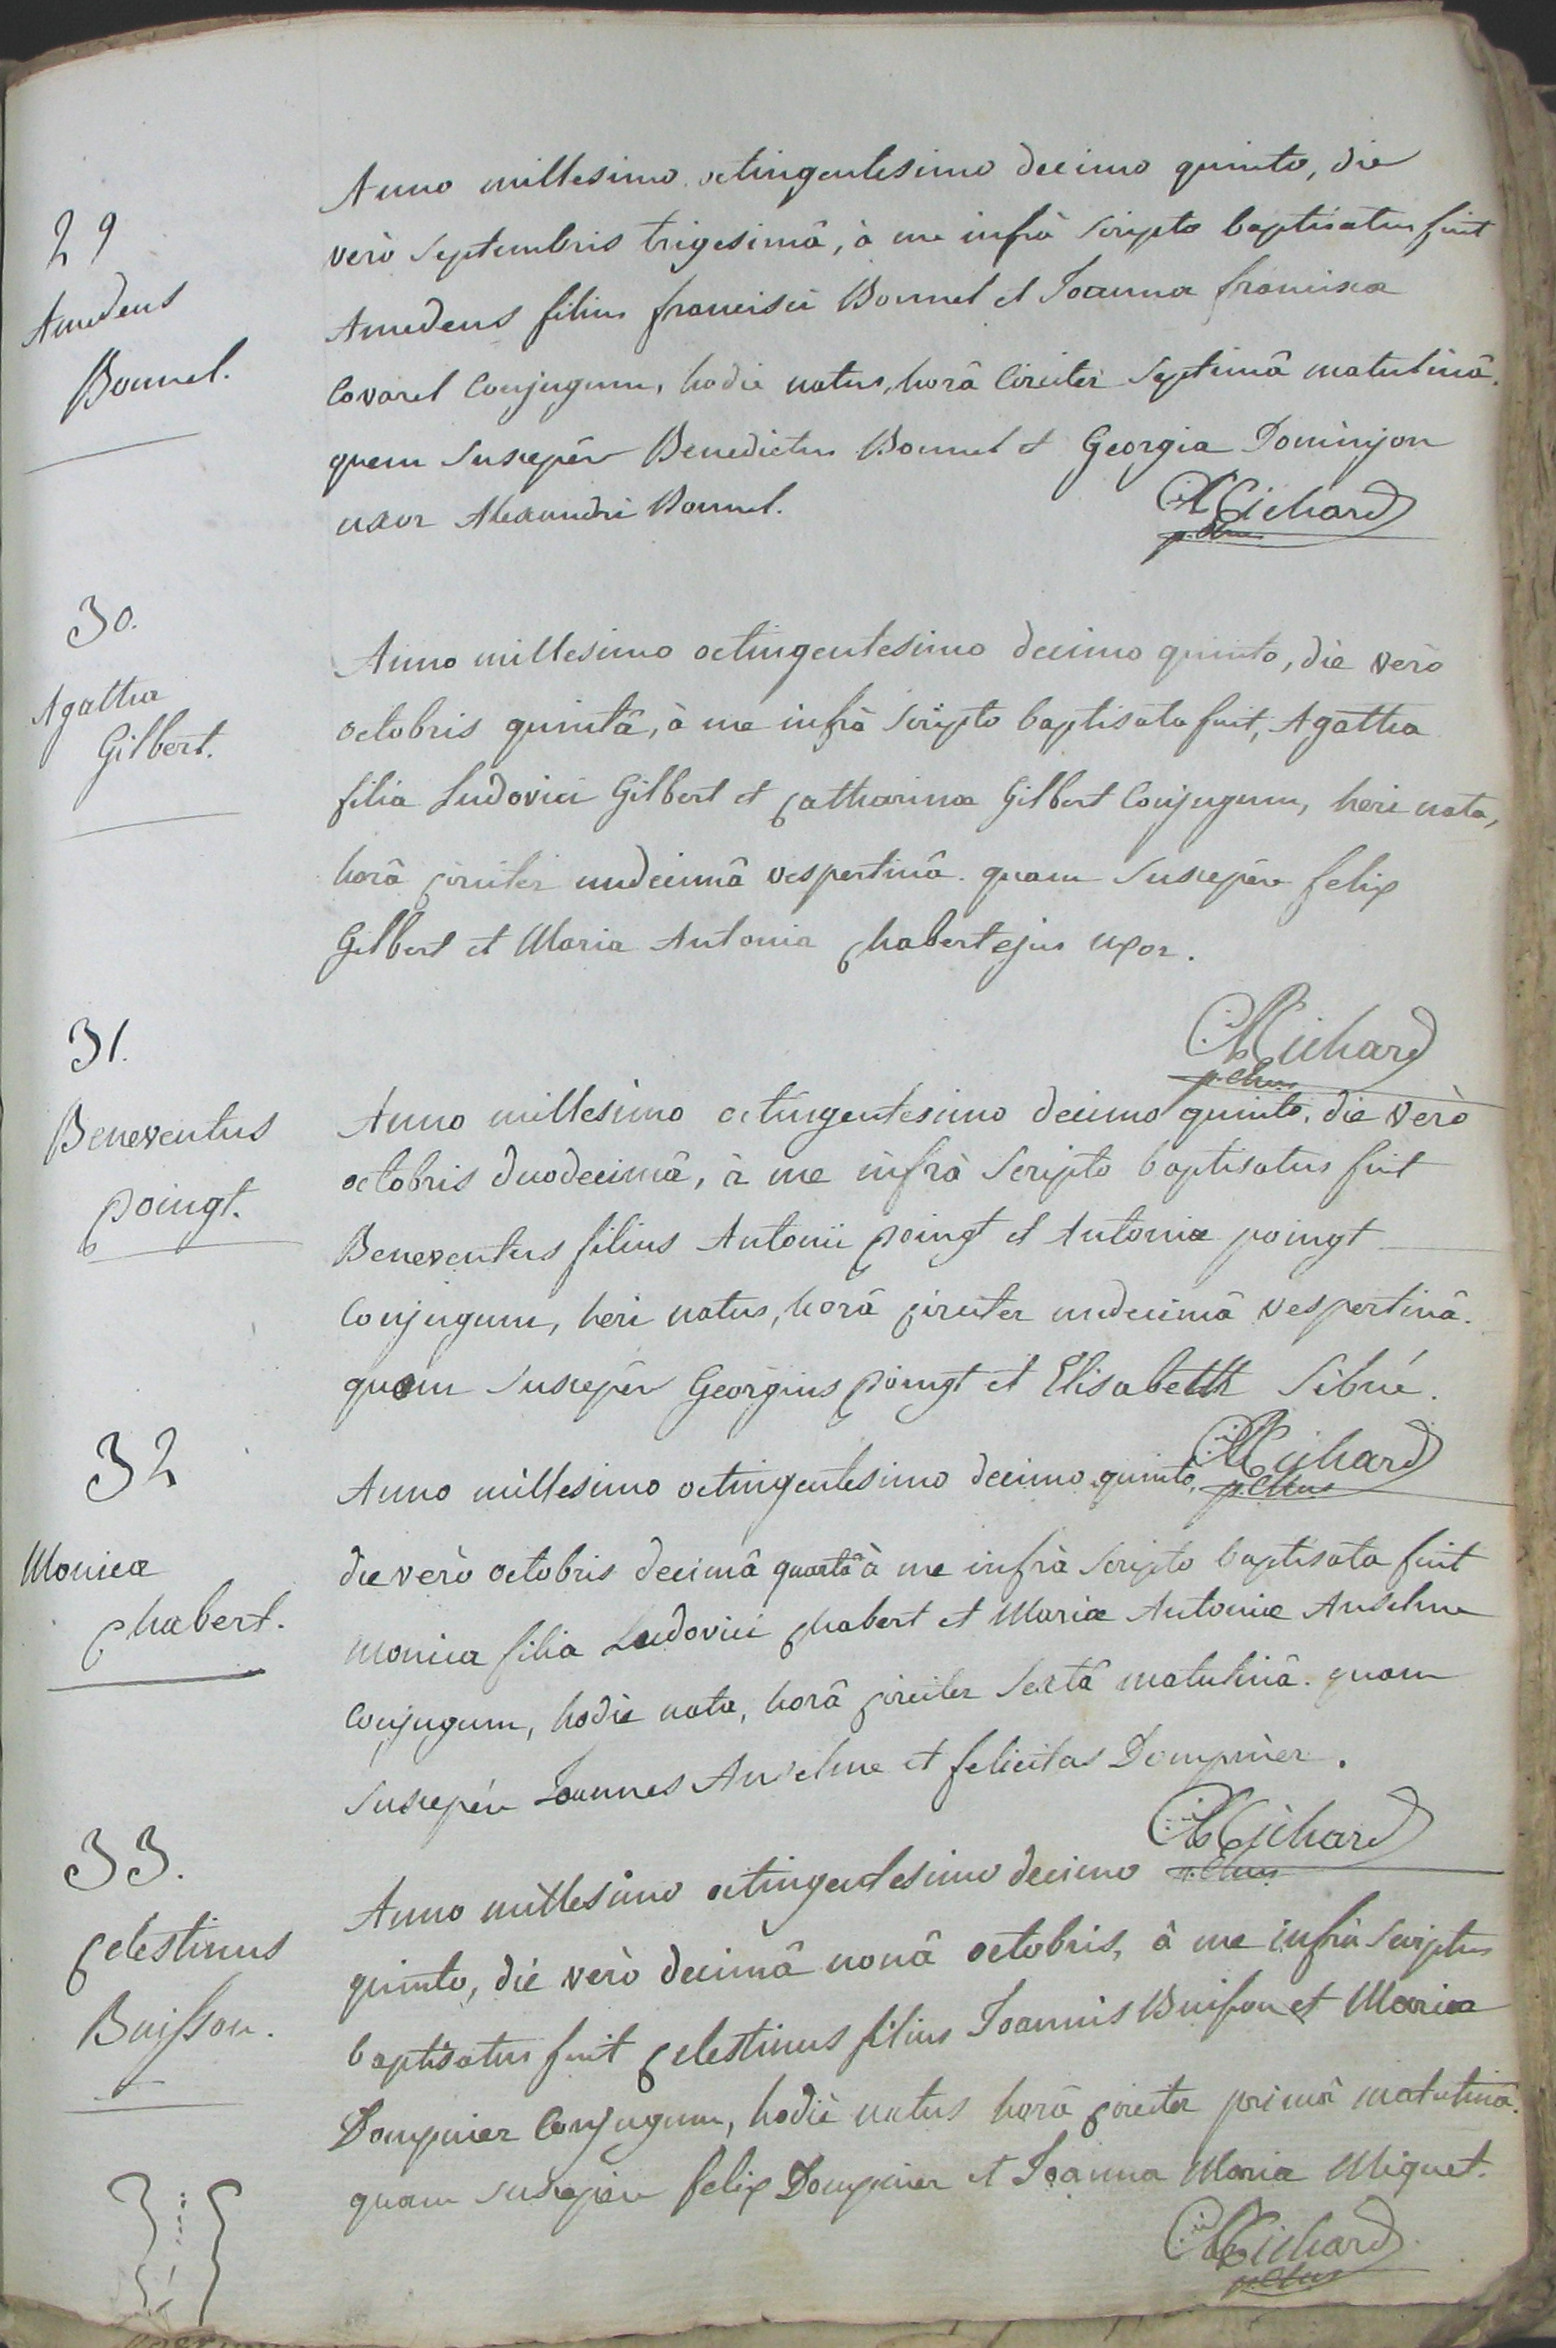 29
Amedeus
Bonnel.
Anno millesimo octingentesimo decimo quinto, die
verò septembris trigesimâ, à me infrà scripto baptisatus fuit
Amedeus filius francisci Bonnel et Joanna francisca
Covarel Conjugum, hodie natus, horâ Circiter septimâ matutinâ.
quem suscepêre Benedictus Bonnel et Georgia Dominjon
uxor Alexandri Bonnel.
Richard
30.
Agatha
Gilbert.
Anno millesimo octingentesimo decimo quinto, die verò
octobris quintâ, à me infrà scripto baptisata fuit, Agatha
filia Ludovici Gilbert et Catharinæ Gilbert Conjugum, heri nata,
horâ Circiter undecimâ vespertinâ. quam suscepêre felix
Gilbert et Maria Antonia Chabert ejus uxor.
Richard
31.
Beneventus
Poingt.
Anno millesimo octingentesimo decimo quinto, die verò
octobris duodecimâ, à me infrà scripto baptisatus fuit
Beneventus filius Antonii Poingt et Antoniæ poingt
Conjugum, heri natus, horâ Circiter undecimâ vespertinâ.
quem suscepêre Georgius Poingt et Elisabeth Sibué.
Richard
32
Monica
Chabert.
Anno millesimo octingentesimo decimo quinto,
die verò octobris decimâ quartâ à me infrà scripto baptisata fuit
Monica filia Ludovici Chabert et Mariæ Antoniæ Anselme
Conjugum, hodiè nata, horâ Circiter sextâ matutinâ. quam
suscepêre Joannes Anselme et felicitas Dompnier.
Richard
33.
Celestinus
Buisson.
Anno millesimo octingentesimo decimo
quinto, die verò decimâ nonâ octobris, à me infrà scriptus
baptisatus fuit Celestinus filius Joannis Buisson et Mariæ
Dompnier Conjugum, hodiè natus horâ Circiter primâ matutinâ.
quam suscepêre felix Dompnier et Joanna Maria Miguet.
Richard